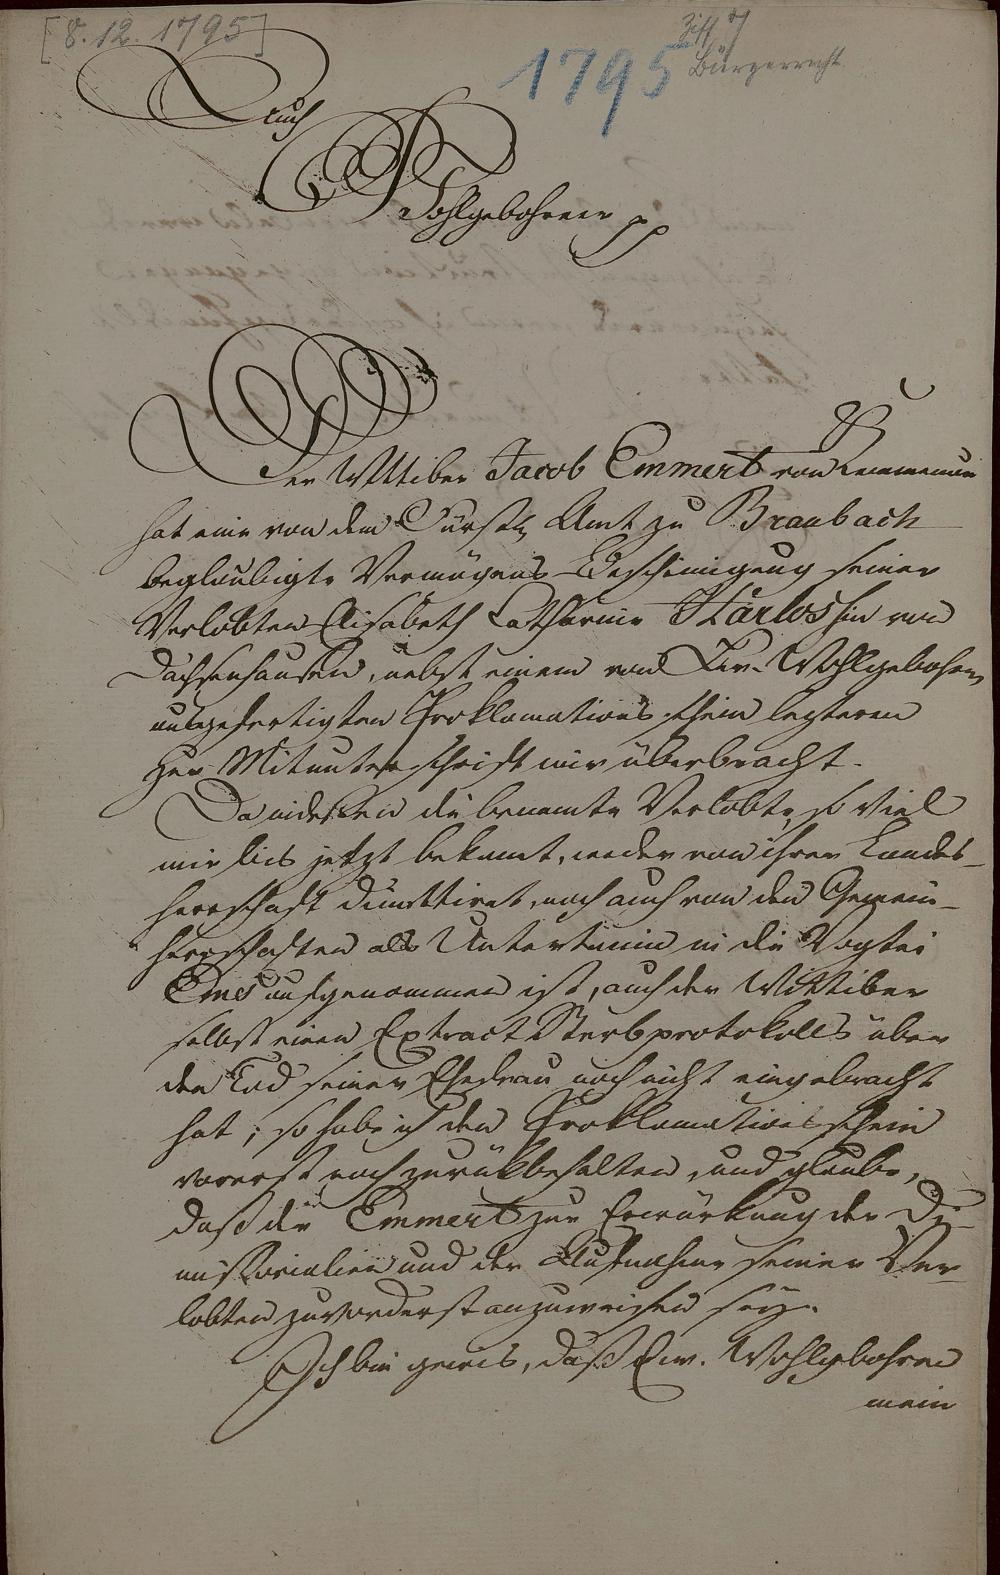 [8.12.1795]
Ziff 7
1795 Bürgerrecht
Auch
Wohlgebohrner pp
Der Wittiber Jacob Emmert von Kemmenau
hat eine von dem Fürstl. Amt zu Braubach
beglaubigte Vermögens-Bescheinigung seiner
Verlobten Elisabeth Catharine Harlossin von
Dachsenhausen, nebst einem von Ew. Wohlgebohren
ausgefertigten Proklamationsschein letzteren
zur Mitunterschrift mir überbracht.
Da indessen die benannte Verlobte, so viel
mir bis jetzt bekannt, weder von ihrer Landes-
herrschaft dimittiret, noch auch von den Gemein-
herrschaften als Unterthanin in die Vogtei
Ems aufgenommen ist, auch der Wittiber
selbst einen Extract Sterbprotokolls über
den Tod seiner Ehefrau noch nicht eingebracht
hat; so habe ich den Proklamationsschein
vorerst noch zurükbehalten, und glaube,
daß der Emmert zur Erwürkung der Di-
missorialien und der Aufnahme seiner Ver-
lobten zuvorderst anzuweisen sey.
Ich bin gewis, daß Ew. Wohlgebohren
mein